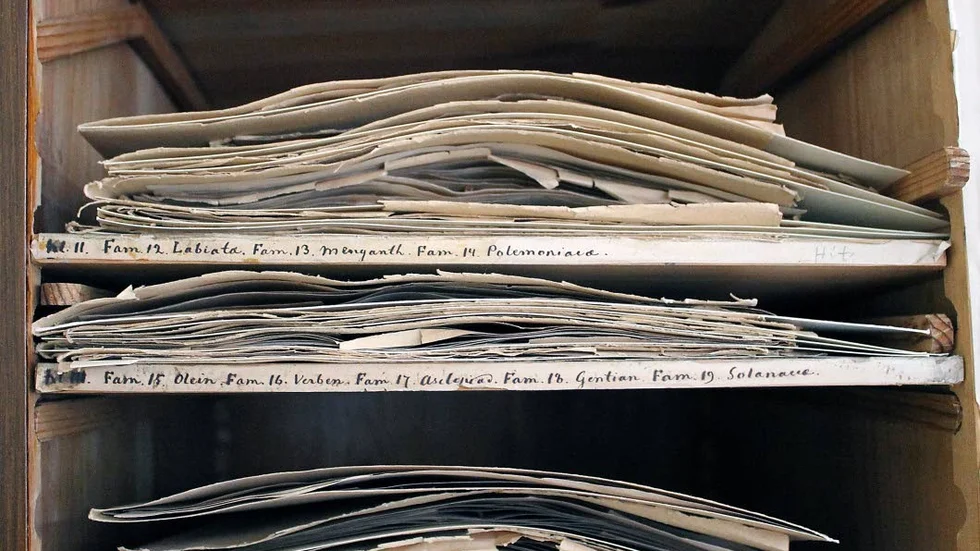 11. Fam. 12. Labiata. Fam. 13. Menyanth. Fam. 14. Polemoniacea.
Fam. 15. Olein. Fam. 16. Verben. Fam. 17. Asclepiad. Fam. 18. Gentian. Fam. 19. Solanacea.